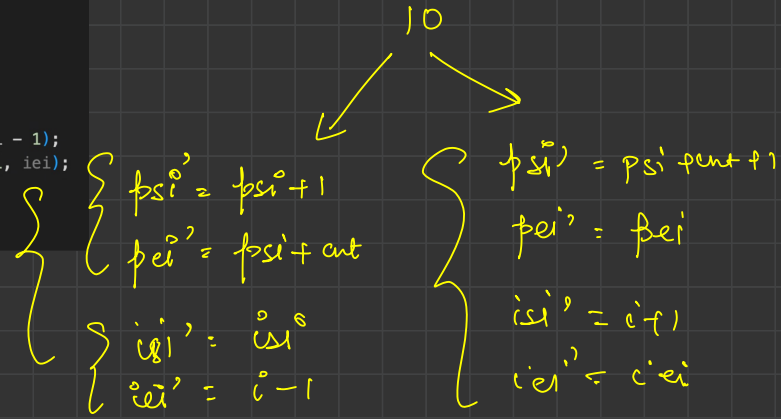 10
- 1);
, iei);
psi' = psi+1
pei' = psi+cnt
isi' = isi
iei' = i-1
psi' = psi+cnt+1
pei' = pei
isi' = i+1
iei' = iei